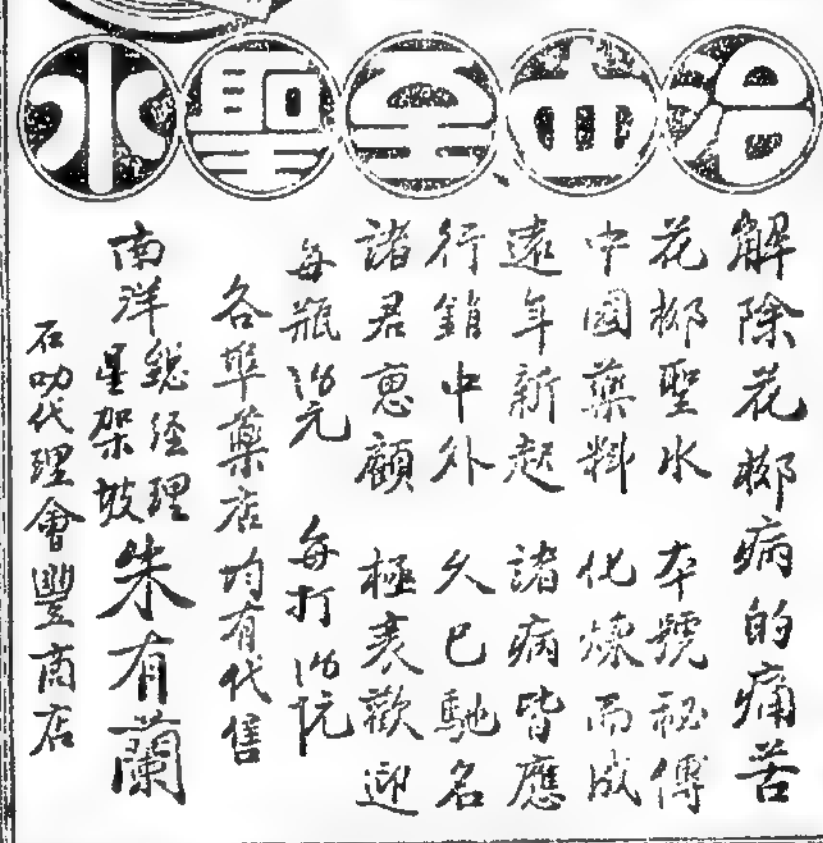 治血至聖水
解除花柳病的痛苦
花柳聖水 本號秘傳
中國藥料 化煉而成
遠年新起 諸病皆應
行銷中外 久已馳名
諸君惠顧 極表歡迎
每瓶元 每打
各埠藥店均有代售
南洋總經理星架坡朱有蘭
石叻代理會豐商店